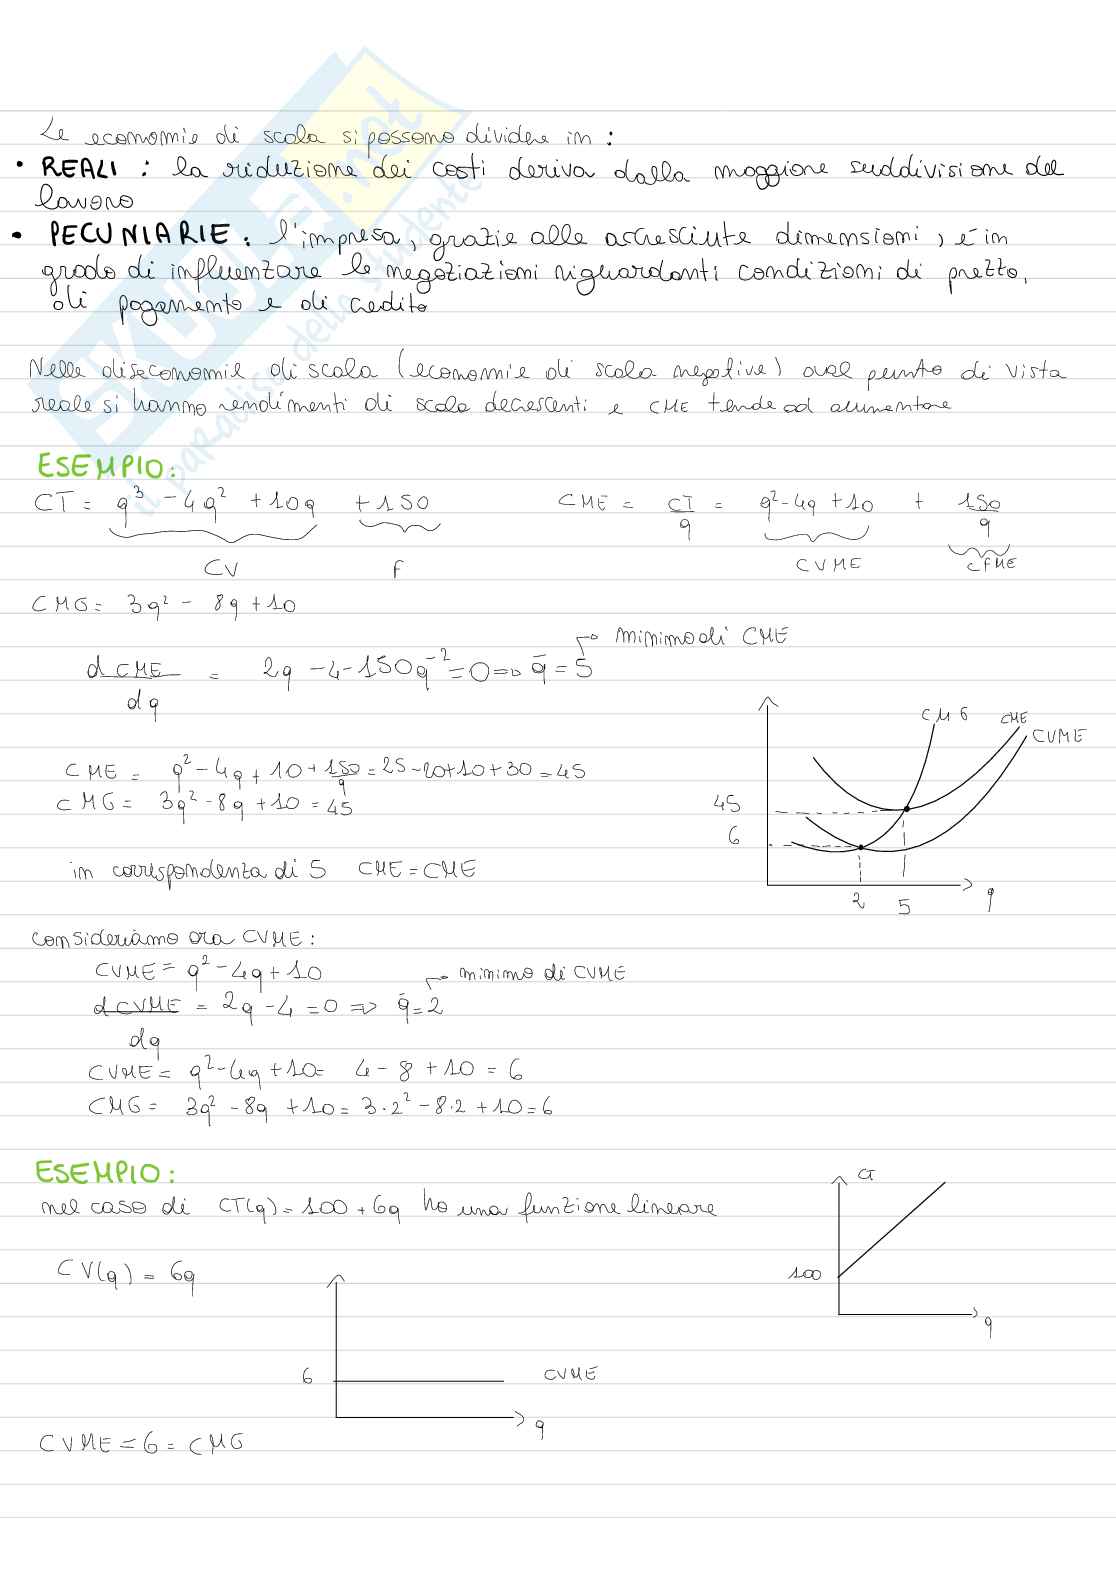 Le economie di scala si possono dividere in :
• REALI : la riduzione dei costi deriva dalla maggiore suddivisione del
lavoro
• PECUNIARIE : l'impresa, grazie alle accresciute dimensioni, è in
grado di influenzare le negoziazioni riguardanti condizioni di prezzo,
di pagamento e di credito
Nelle diseconomie di scala (economie di scala negative) dal punto di vista
reale si hanno rendimenti di scala decrescenti e CME tende ad aumentare
ESEMPIO:
CT = q³ - 4q² + 10q + 150 CME = CT/q = q² - 4q + 10 + 150/q
CV F CVME CFME
CMG = 3q² - 8q + 10
minimo di CME
dCME/dq = 2q - 4 - 150q⁻² = 0 => q̄ = 5
CME = q² - 4q + 10 + 150/q = 25 - 20 + 10 + 30 = 45
CMG = 3q² - 8q + 10 = 45
in corrispondenza di 5 CME = CME
CMG CME
CVME
45
6
2 5 q
consideriamo ora CVME :
CVME = q² - 4q + 10 minimo di CVME
dCVME/dq = 2q - 4 = 0 => q̄ = 2
CVME = q² - 4q + 10 = 4 - 8 + 10 = 6
CMG = 3q² - 8q + 10 = 3·2² - 8·2 + 10 = 6
ESEMPIO :
nel caso di CT(q) = 100 + 6q ho una funzione lineare
CT
100
q
CV(q) = 6q
6 CVME
q
CVME = 6 = CMG
SKUOLA.net
il paradiso dello studente